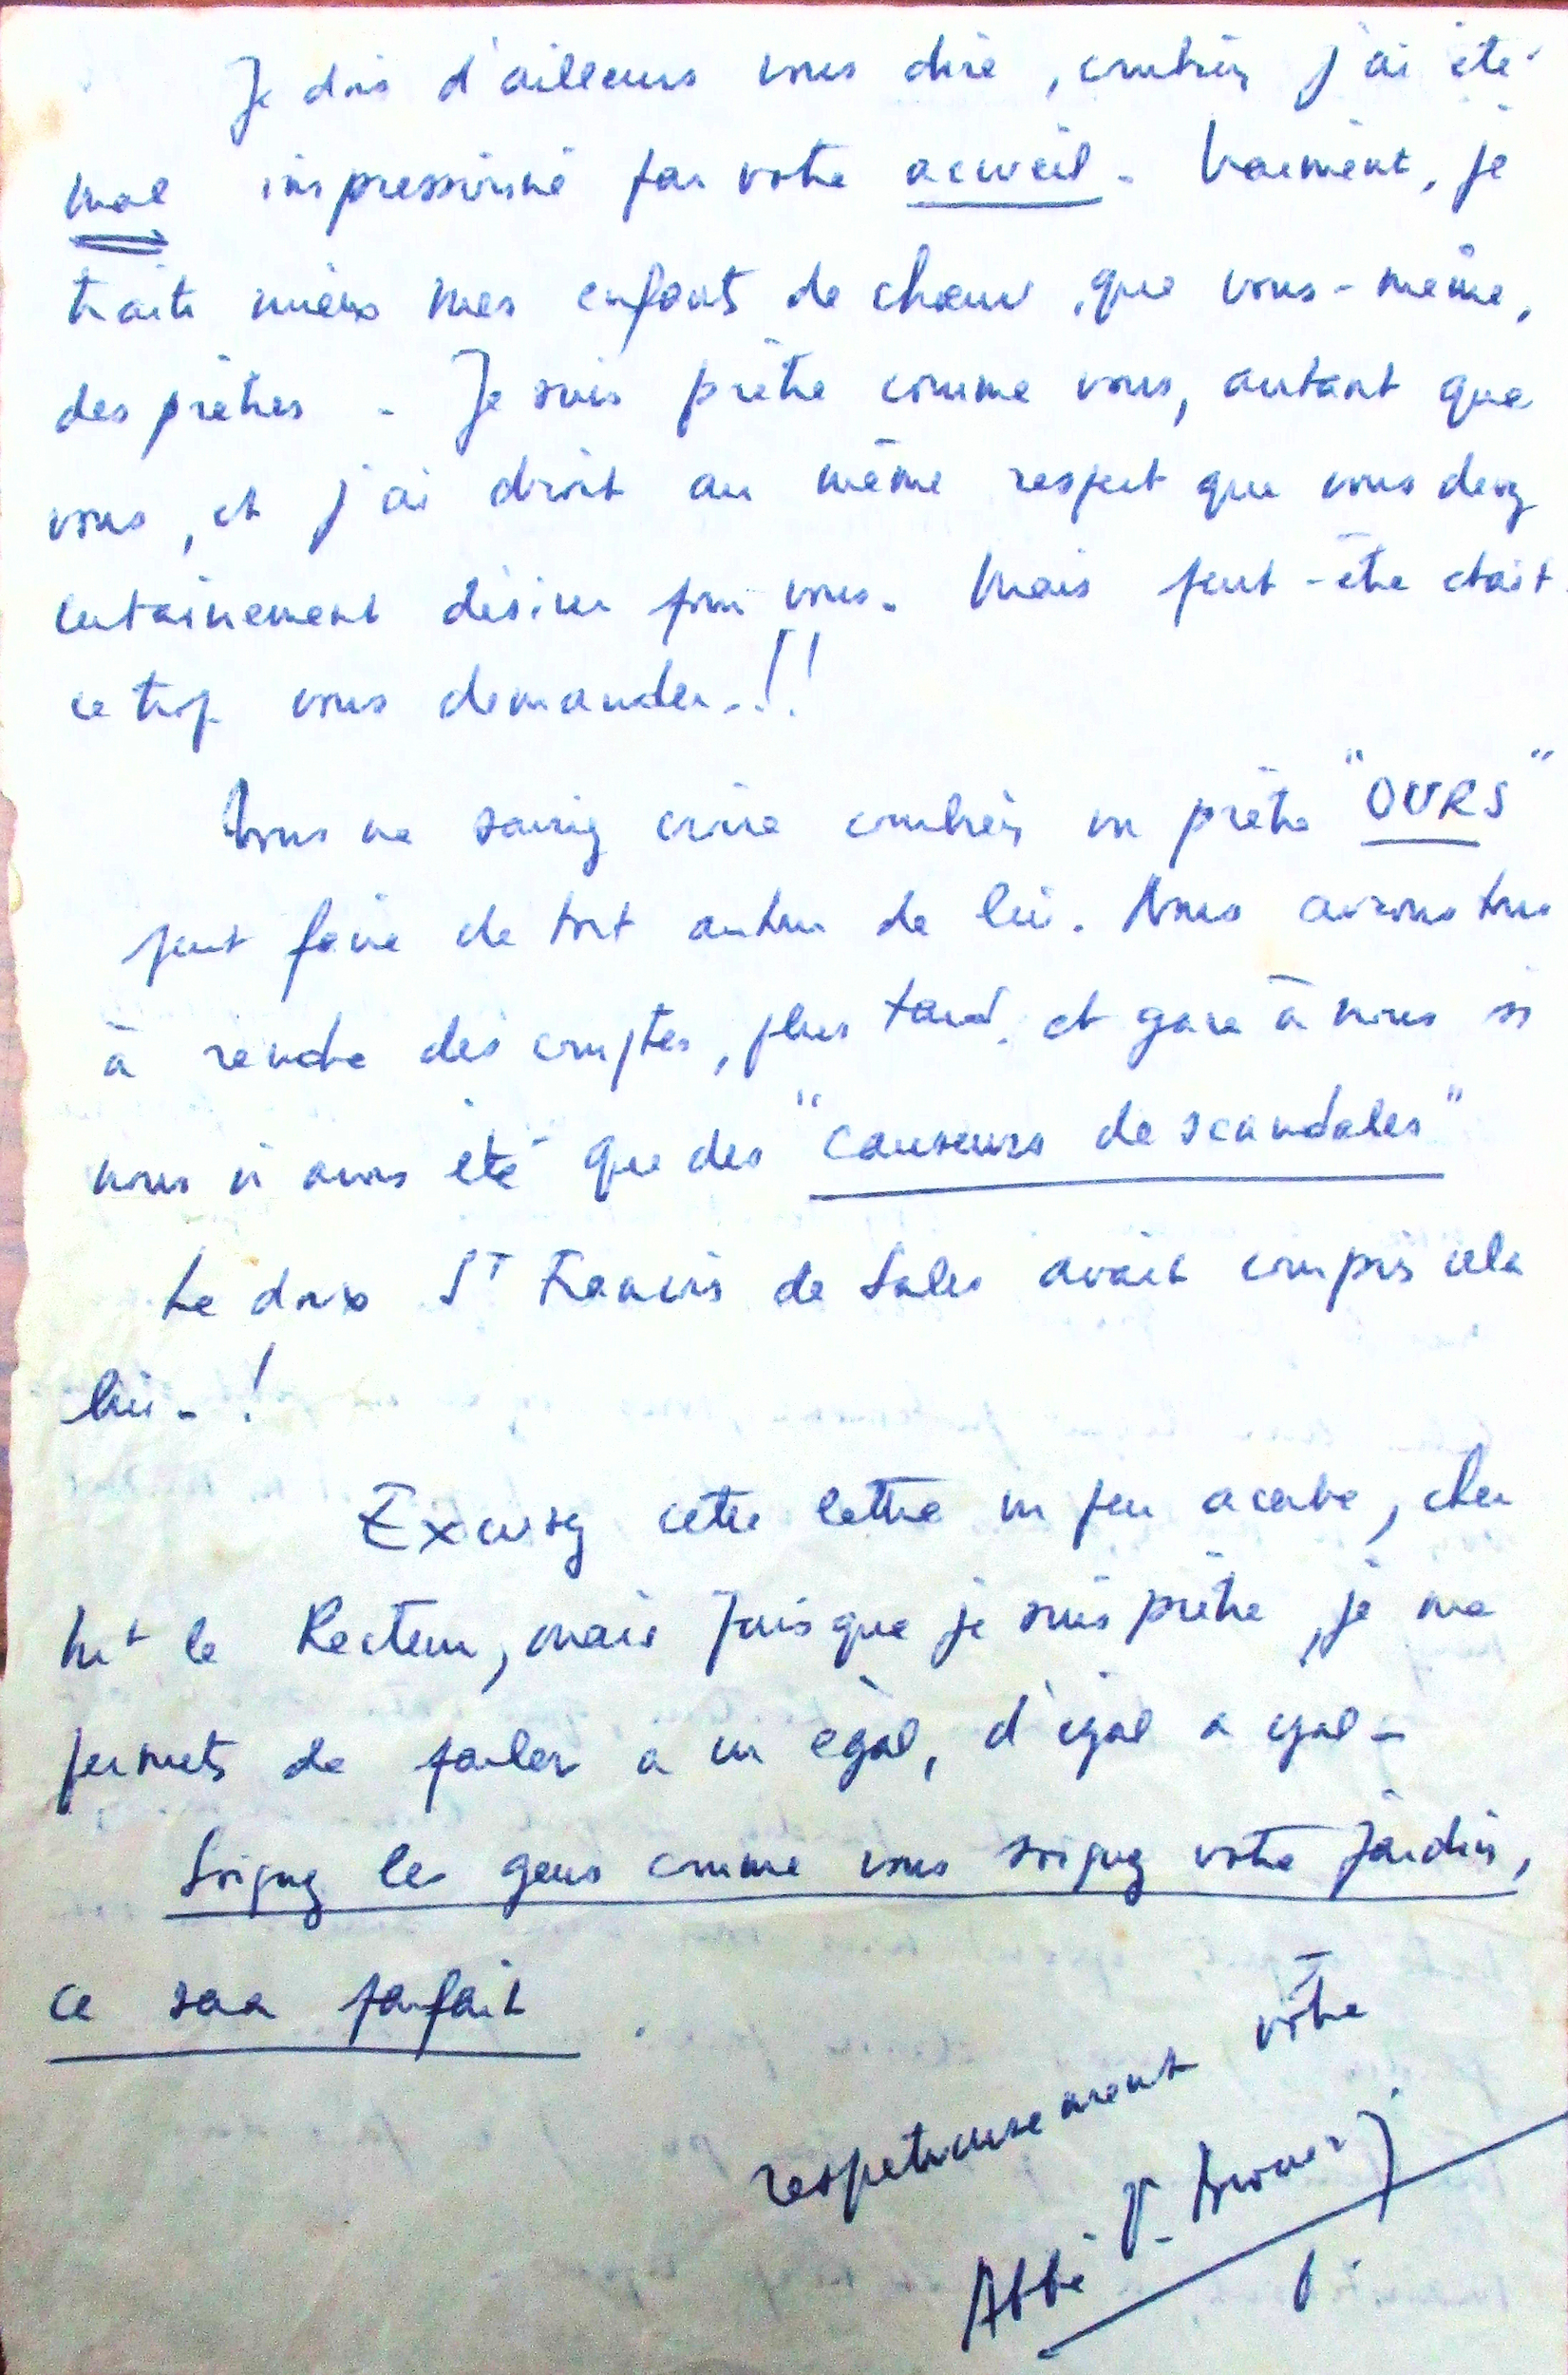 Je dois d'ailleurs vous dire, combien j'ai été
mal impressionné par votre accueil. Vraiment, je
traite mieux mes enfants de chœur, que vous-même,
des prêtres. Je suis prêtre comme vous, autant que
vous, et j'ai droit au même respect que vous devez
certainement désirer pour vous. Mais peut-être était
ce trop vous demander..!!
Vous ne sauriez croire combien un prêtre "OURS"
peut faire de tort autour de lui. Nous aurons tous
à rendre des comptes, plus tard, et gare à nous si
nous n'avons été que des "causeurs de scandales"
Le doux St François de Sales avait compris cela
lui. !
Excusez cette lettre un peu acerbe, cher
Mr le Recteur, mais puisque je suis prêtre, je me
permets de parler à un égal, d'égal à égal.
Soignez les gens comme vous soignez votre jardin,
ce sera parfait.
respectueusement vôtre
Abbé